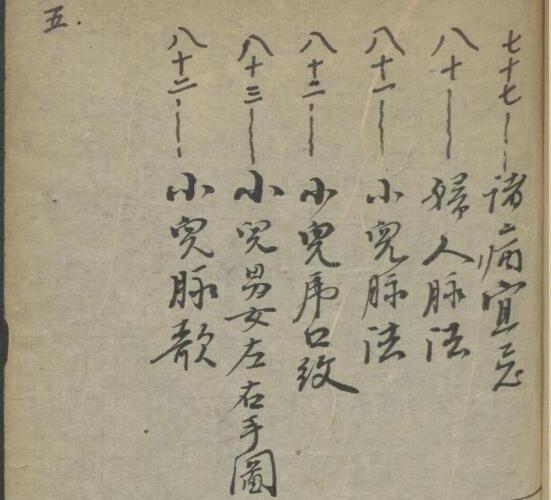 七十七 诸病宜忌
八十 婦人脉法
八十一 小児脉法
八十二 小児虎口纹
八十三 小児男女左右手圖
八十二 小児脉歌
五.